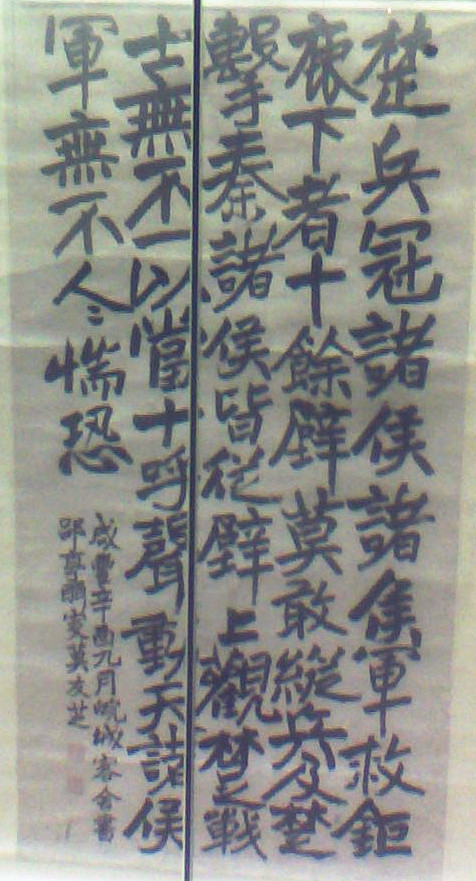 楚兵冠諸侯諸侯軍救鉅
鹿下者十餘壁莫敢縱兵及楚
擊秦諸侯皆從壁上觀楚戰
士無不一以當十呼聲動天諸侯
軍無不人〻惴恐
咸豐辛酉九月皖城客舍書
郘亭眲叟莫友芝